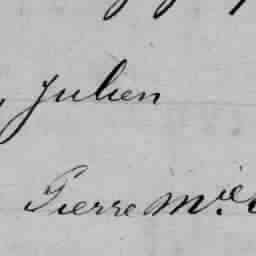 , Julien
Pierre Mie